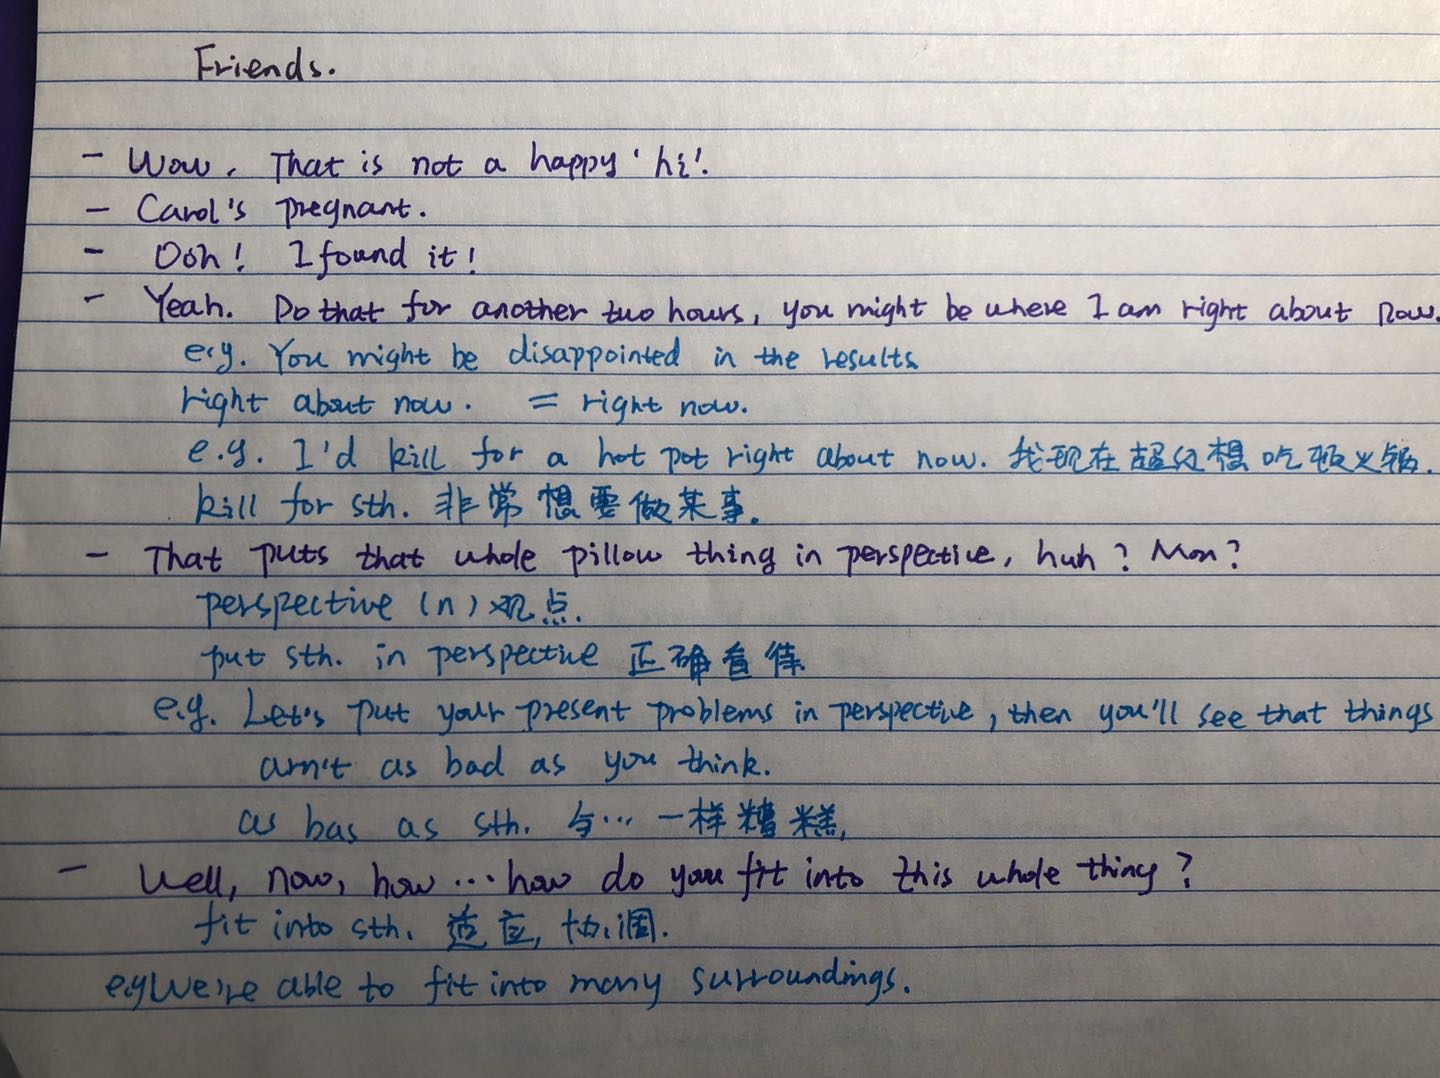 Friends.
- Wow. That is not a happy 'hi'.
- Carol's pregnant.
- Ooh! I found it!
- Yeah. Do that for another two hours, you might be where I am right about now.
e.g. You might be disappointed in the results
right about now. = right now.
e.g. I'd kill for a hot pot right about now. 我现在超级想吃顿火锅.
kill for sth. 非常想要做某事.
- That puts that whole pillow thing in perspective, huh? Mon?
perspective (n) 观点.
put sth. in perspective 正确看待.
e.g. Let's put your present problems in perspective, then you'll see that things
arn't as bad as you think.
as bas as sth. 与…一样糟糕.
- Well, now, how ... how do you fit into this whole thing?
fit into sth. 适应, 协调.
e.g We're able to fit into many surroundings.